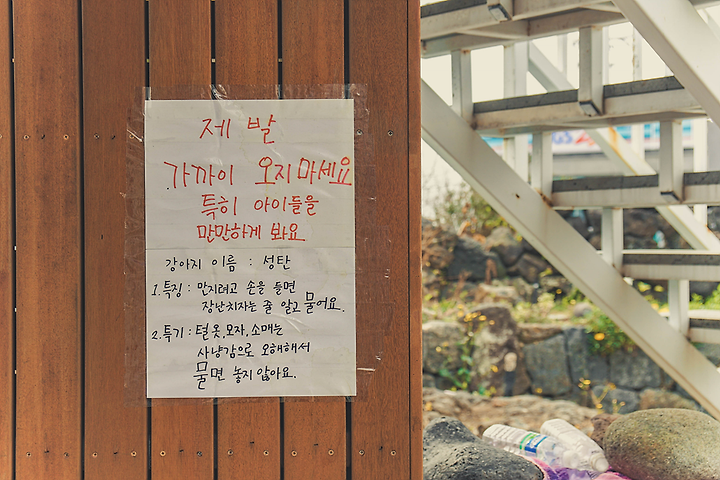 제발
가까이 오지 마세요
특히 아이들을
만만하게 봐요
강아지 이름 : 성탄
1. 특징 : 만지려고 손을 들면
장난치자는 줄 알고 물어요.
2. 특기 : 털 옷, 모자, 소매는
사냥감으로 오해해서
물면 놓지 않아요.